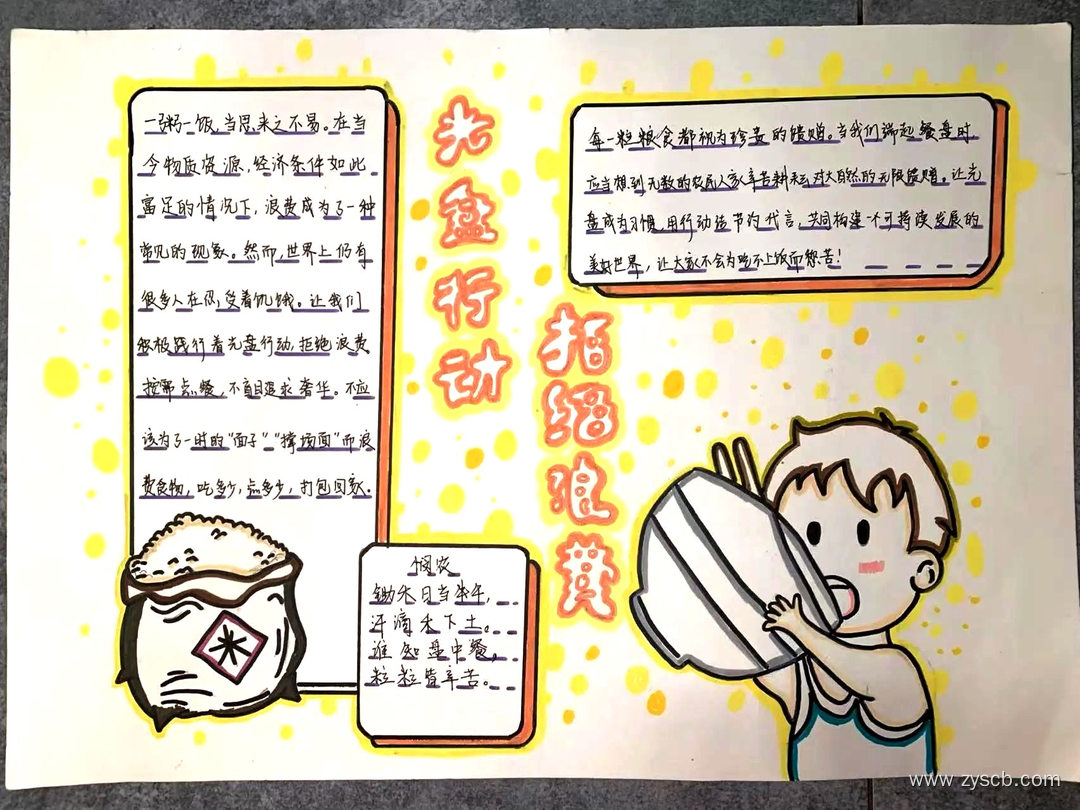 一粥一饭，当思来之不易。在当
今物质资源，经济条件如此
富足的情况下，浪费成为了一种
常见的现象。然而，世界上仍有
很多人在忍受着饥饿。让我们
积极践行着光盘行动，拒绝浪费
按需点餐，不盲目追求奢华。不应
该为了一时的“面子”“撑场面”而浪
费食物，吃多少，点多少，打包回家。
米
光盘行动
拒绝浪费
悯农
锄禾日当午，
汗滴禾下土。
谁知盘中餐，
粒粒皆辛苦。
每一粒粮食都视为珍贵的馈赠。当我们端起餐盘时，
应当想到无数的农民人家辛苦耕耘，对大自然的无限馈赠。让光
盘成为习惯，用行动造节约代言，共同构建一个可持续发展的
美好世界，让大家不会为吃不上饭而愁苦！
www.zyscb.com